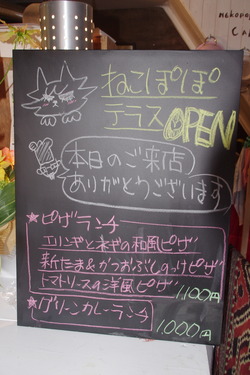 nekopopo
Ca
ねこぽぽ
テラスOPEN
本日のご来店
ありがとうございます
★ピザランチ
エリンギとネギの和風ピザ
新たま&かつおぶしのっけピザ
トマトソースの洋風ピザ
1,100円
★グリーンカレーランチ
1,000円